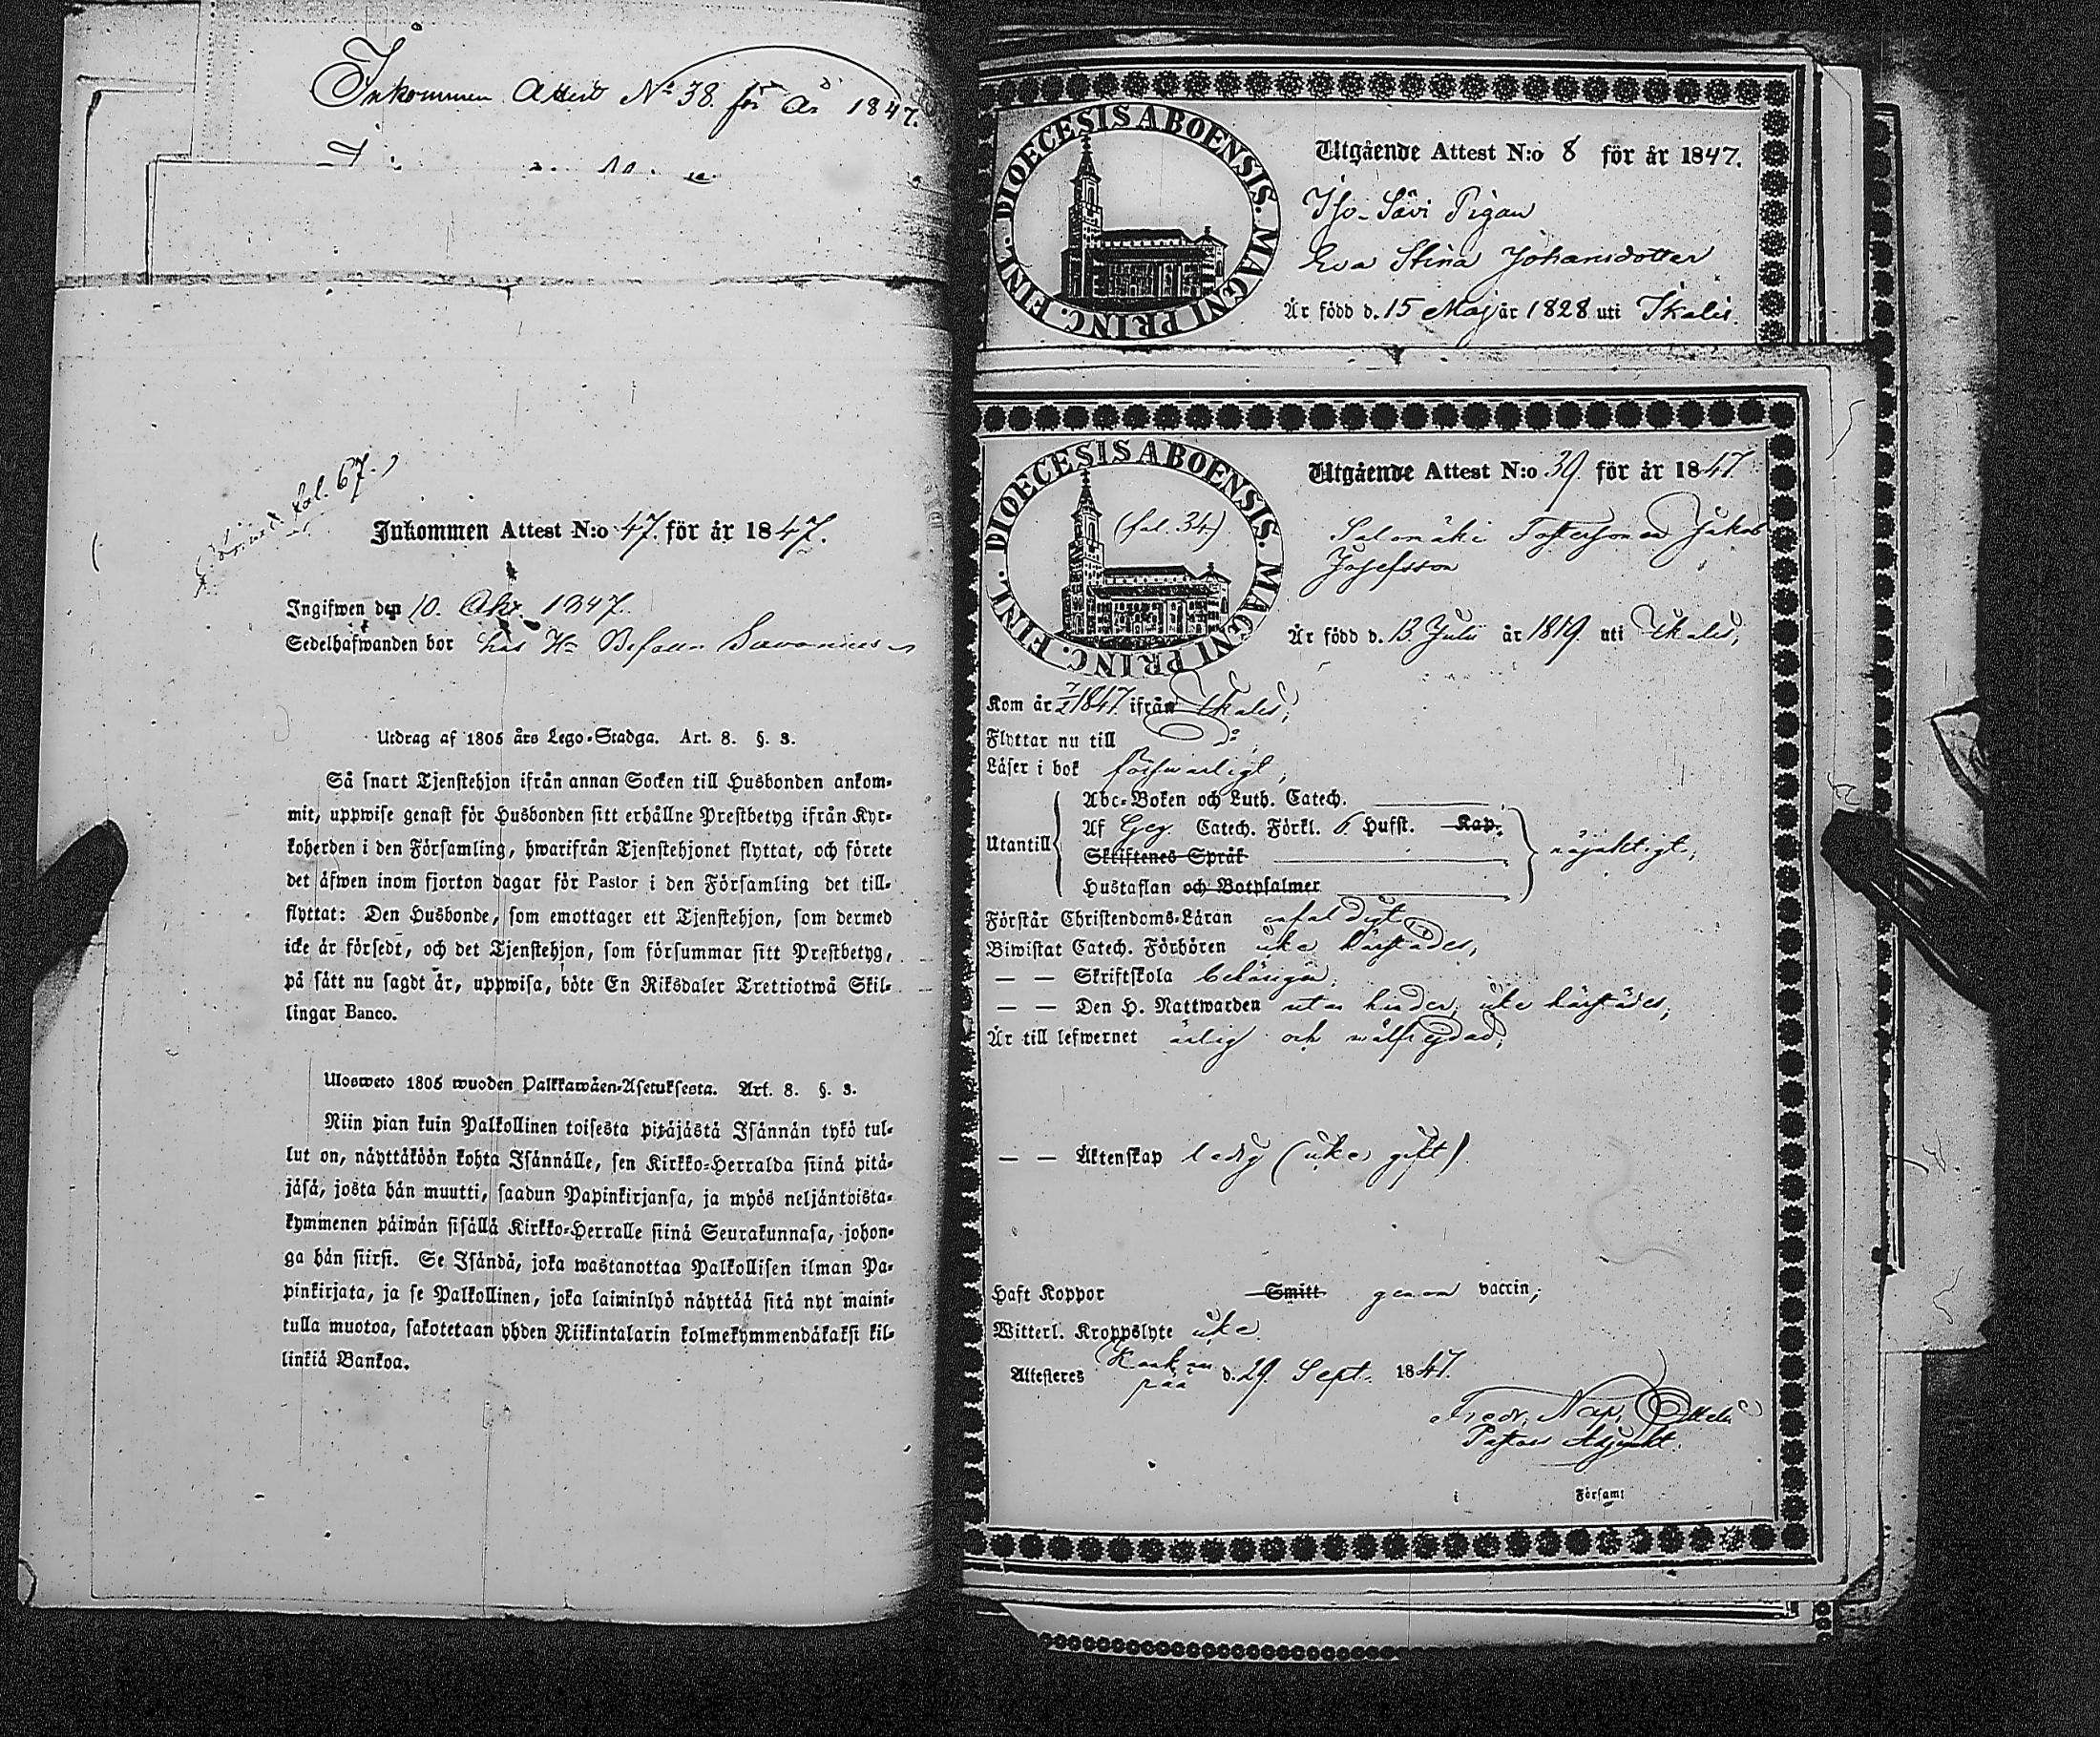 Inkommen Attest No 38. för år 1847.
fol. 67.
Inkommen Attest N:o 47. för år 1847.
Ingifwen den 10. Okt. 1847.
Sedelhafwanden bor hos Hr Savonius
Utdrag af 1805 års Lego-Stadga. Art. 8. §. 3.
Så snart Tjenstehjon ifrån annan Socken till Husbonden ankom-
mit, uppwise genast för Husbonden sitt erhållne Prestbetyg ifrån Kyr-
koherden i den Församling, hwarifrån Tjenstehjonet flyttat, och förete
det äfwen inom fjorton dagar för Pastor i den Församling det till-
flyttat: Den Husbonde, som emottager ett Tjenstehjon, som dermed
icke är försedt, och det Tjenstehjon, som försummar sitt Prestbetyg,
på sätt nu sagdt är, uppwisa, böte En Riksdaler Trettiotwå Skil-
lingar Banco.
Ulosweto 1805 wuoden Palkkawäen-Asetuksesta. Art. 8. §. 3.
Niin pian kuin Palkollinen toisesta pitäjästä Isännän tykö tul-
lut on, näyttäköön kohta Isännälle, sen Kirkko-Herralda siinä pitä-
jäsä, josta hän muutti, saadun Papinkirjansa, ja myös neljäntoista-
kymmenen päiwän sisällä Kirkko-Herralle siinä Seurakunnasa, johon-
ga hän siirsi. Se Isändä, joka wastanottaa Palkollisen ilman Pa-
pinkirjata, ja se Palkollinen, joka laiminlyö näyttää sitä nyt maini-
tulla muotoa, sakotetaan yhden Riikintalarin kolmekymmendäkaksi kil-
linkiä Bankoa.
DIOECESIS ABOENSIS. MAGNI PRINC. FINL.
Utgående Attest N:o 8 för år 1847.
Iso-Sävi Pigan
Eva Stina Johansdotter
Är född d. 15 Maj år 1828 uti Ikalis.
DIOECESIS ABOENSIS. MAGNI PRINC. FINL.
(fol. 34)
Utgående Attest N:o 39. för år 1847.
Salomäki Fostersonen Jakob
Josefsson
Är född d. 13 Julii år 1819. uti Ikalis,
Kom år 1847. ifrån Ikalis,
Flyttar nu till do,
Läser i bok försvarligt,
Abc-Boken och Luth. Catech.
Utantill Af Gez. Catech. Förkl. 6 Hufst. Kap. nöjaktigt,
Skriftenes Språk
Hustaflan och Botpsalmer
Förstår Christendoms-Läran enfaldigt
Biwistat Catech. Förhören icke härstädes,
— — Skriftskola behörigen,
— — Den H. Nattwarden utan hinder, icke härstädes,
Är till lefwernet ärlig och wälfrejdad,
— — Äktenskap ledig (icke gift).
Haft Koppor Smitt genom vaccin,
Witterl. Kroppslyte icke.
Attesteres Kankaanpää d. 29. Sept. 1847.
Fredr. Nap.
Pastors Adjunkt.
i Församl